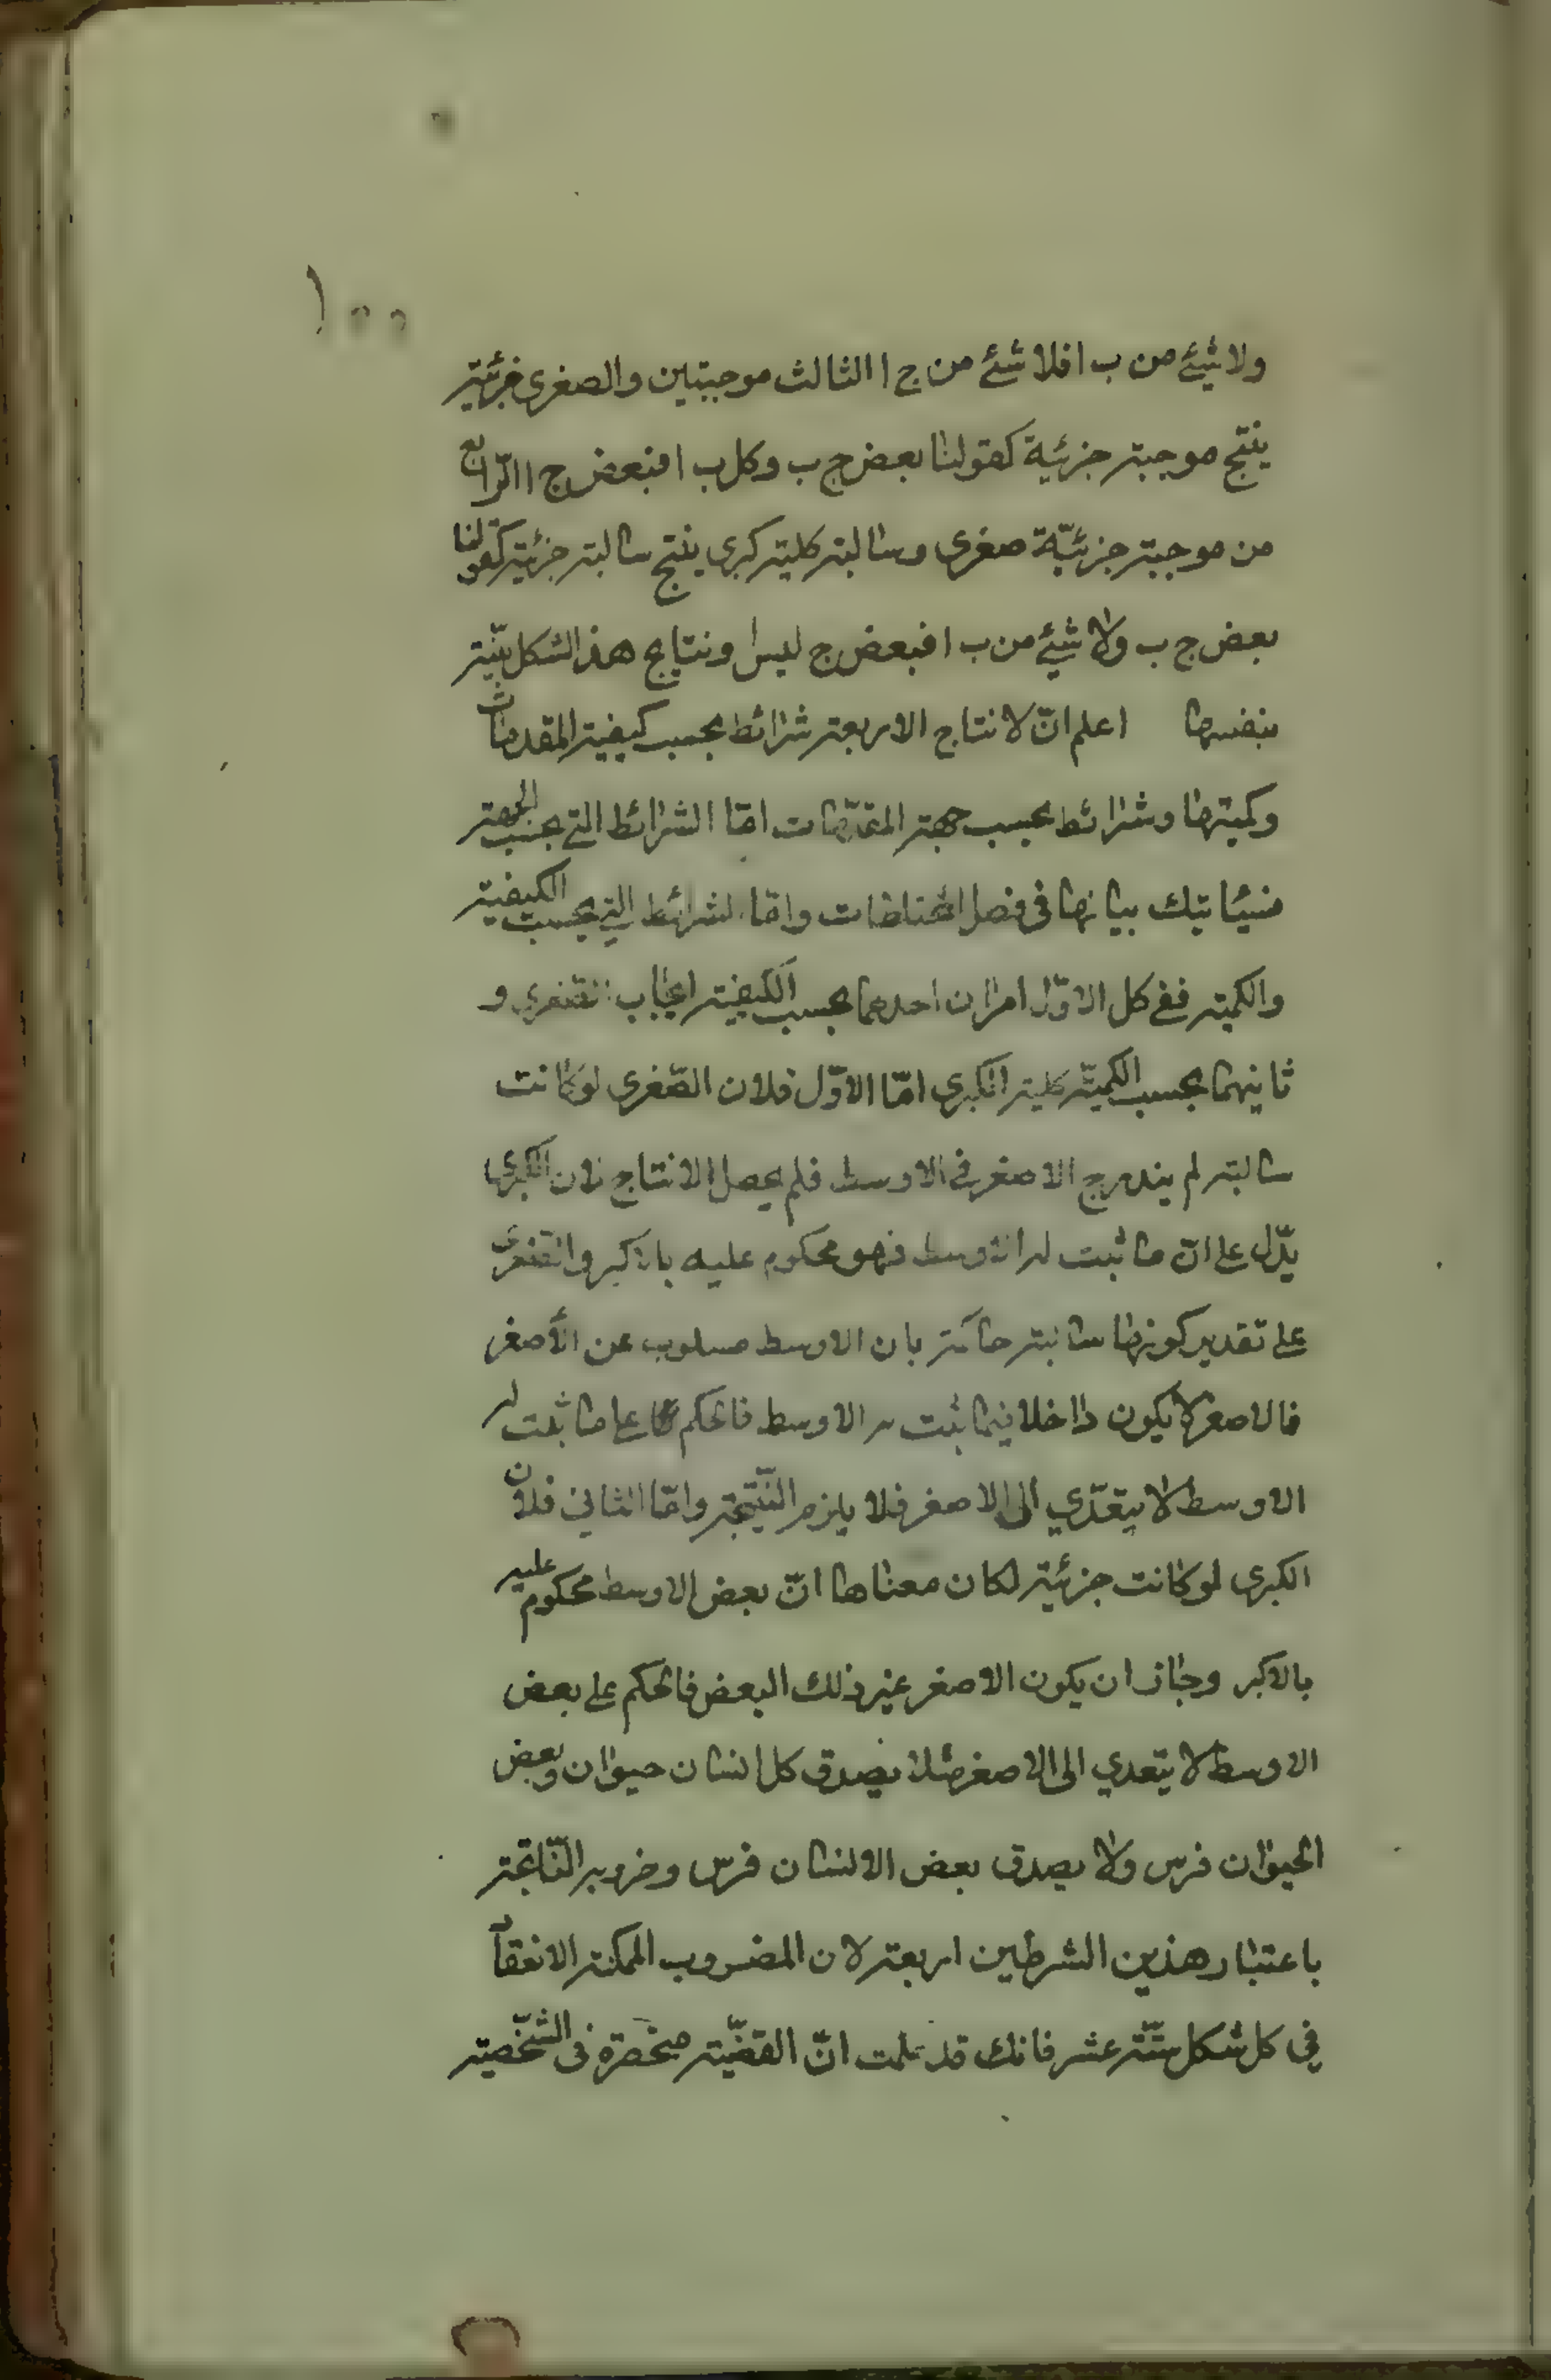 ١٠٠
ولا شيئ من ب ا فلا شئ من ج ا الثالث موجبتين والصغرى جزئية
ينتج موجبة جزئية كقولنا بعض ج ب وكل ب ا فبعض ج ا الرّابع
من موجبة جزئيّة صغرى وسالبة كلية كبرى ينتج سالبة جزئية كقولنا
بعض ج ب ولا شيئ من ب ا فبعض ج ليس ا ونتايج هذا الشكل بيّنة
بنفسها اعلم انّ لانتاج الاربعة شرائط بحسب كيفية المقدمات
وكميتها وشرائط بحسب جهة المقدّمات امّا الشرائط التي بحسب الجهة
فسيأتيك بيانها في فصل المختلطات وامّا الشرائط التي بحسب الكيفية
والكمية ففي كل الاوّل امران احدهما بحسب الكيفية ايجاب الصغرى و
ثانيهما بحسب الكميّة كلية الكبرى امّا الاوّل فلان الصّغرى لو كانت
سالبة لم يندرج الاصغر في الاوسط فلم يحصل الانتاج لان الكبرى
يدّل على انّ ما ثبت له الاوسط فهو محكوم عليه بالاكبر والصّغرى
على تقدير كونها سالبة حاكمة بان الاوسط مسلوب عن الأصغر
فالاصغر لا يكون داخلا فيما ثبت له الاوسط فالحكم على ما ثبت له
الاوسط لا يتعدّي الى الاصغر فلا يلزم النّتيجة وامّا الثاني فلان
الكبرى لو كانت جزئية لكان معناها انّ بعض الاوسط محكوم عليه
بالاكبر وجاز ان يكون الاصغر غير ذلك البعض فالحكم على بعض
الاوسط لا يتعدي الى الاصغر مثلا يصدق كل انسان حيوان وبعض
الحيوان فرس ولا يصدق بعض الانسان فرس وضروبه النّاتجة
باعتبار هذين الشرطين اربعة لان الضروب الممكنة الانعقاد
في كل شكل ستّة عشر فانك قد علمت انّ القضيّة منحصرة في الشخّصية